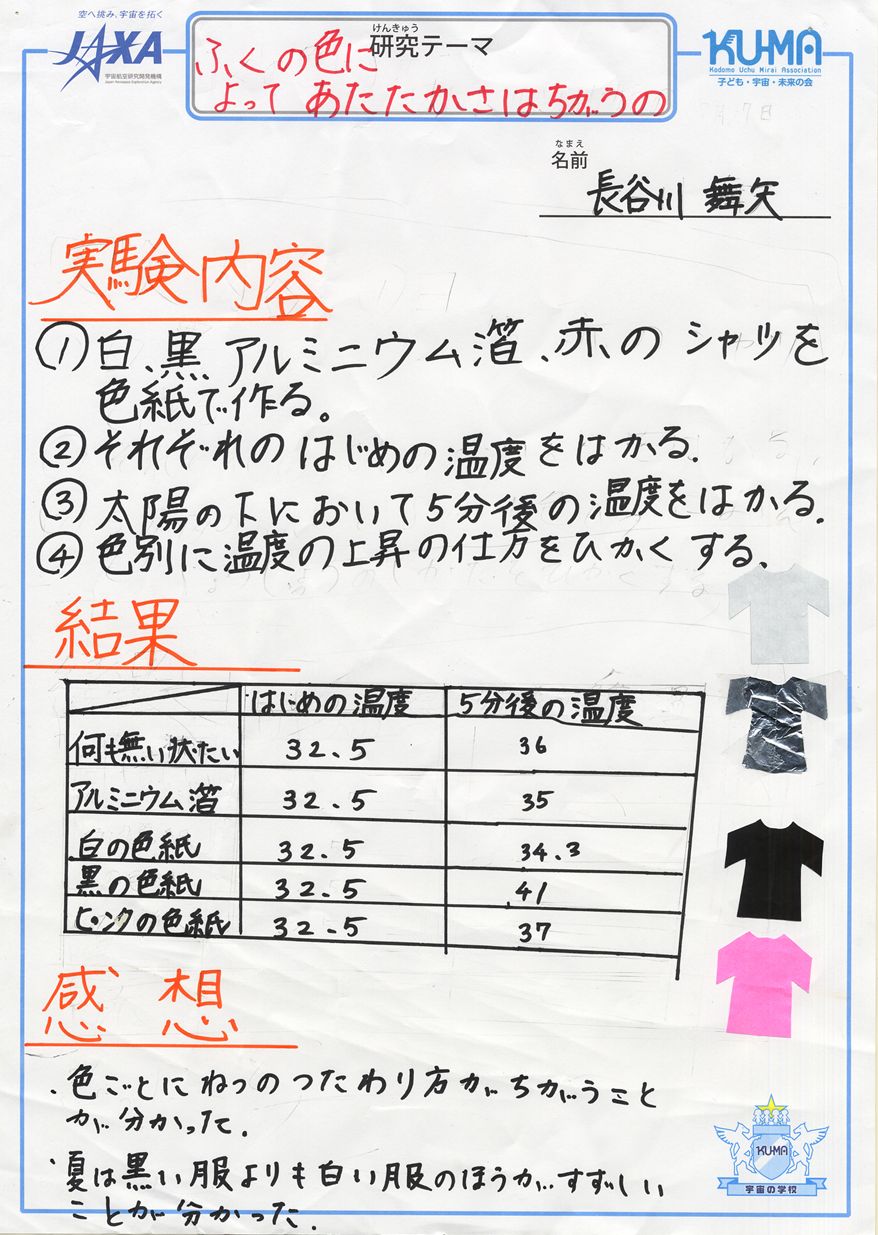 空へ挑み、宇宙を拓く
JAXA
宇宙航空研究開発機構
Japan Aerospace Exploration Agency
けんきゅう
研究テーマ
ふくの色に
よって あたたかさはちがうの
KU-MA
Kodomo Uchu Mirai Association
子ども・宇宙・未来の会
なまえ
名前
長谷川 舞矢
実験内容
①白、黒、アルミニウム箔、赤のシャツを
色紙で作る。
②それぞれのはじめの温度をはかる.
③太陽の下において5分後の温度をはかる.
④色別に温度の上昇の仕方をひかくする.
結果
はじめの温度 5分後の温度
何も無い状たい 32.5 36
アルミニウム箔 32.5 35
白の色紙 32.5 34.3
黒の色紙 32.5 41
ピンクの色紙 32.5 37
感想
・色ごとにねつのつたわり方がちがうこと
が分かった.
・夏は黒い服よりも白い服のほうがすずしい
ことが分かった.
KU-MA
宇宙の学校